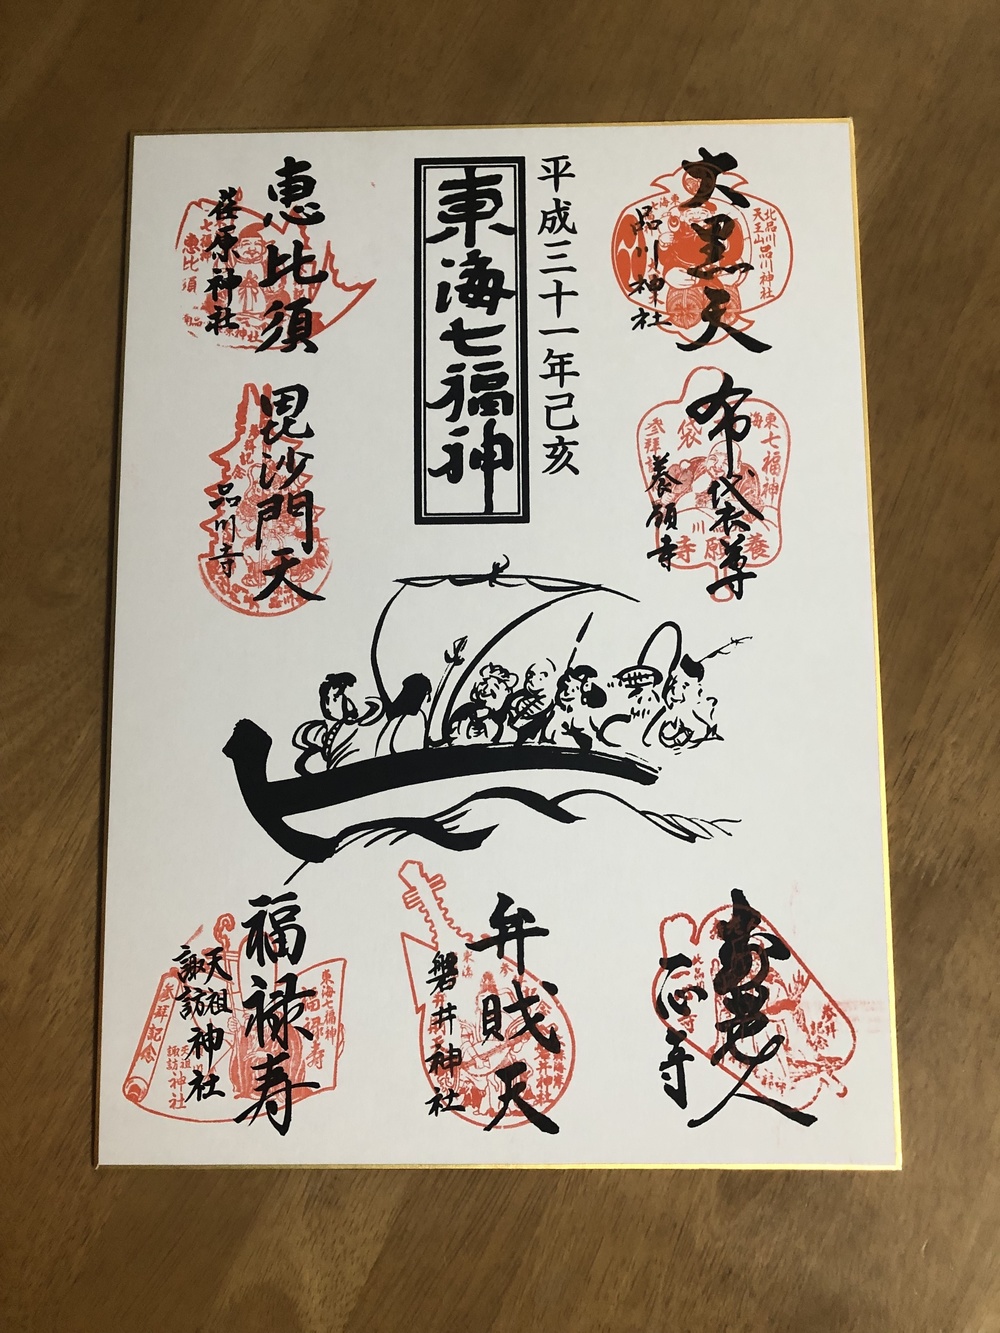 平成三十一年己亥
東海七福神
大黒天
品川神社
東海
北品川品川神社
天王山
布袋尊
養願寺
東海
七福神
参拝
袋
養願寺
恵比須
荏原神社
恵比須
毘沙門天
品川寺
拝記念
寿老人
一心寺
弁財天
磐井神社
福禄寿
天祖
諏訪
神社
東海七福神
参拝記念
天祖
諏訪
神社